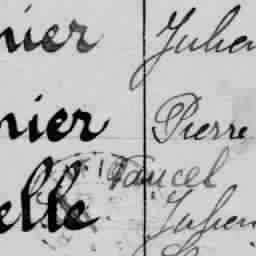 nier Julien
nier Pierre
Marcel
elle Julien